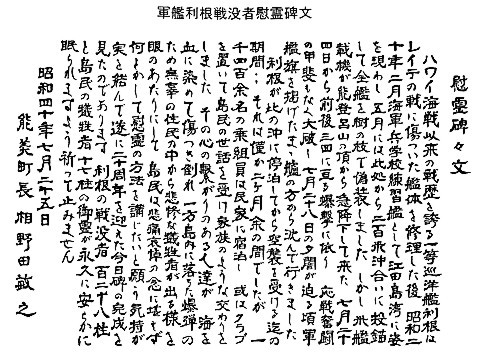 軍艦利根戦没者慰霊碑文
慰霊碑々文
ハワイ海戦以来の戦歴を誇る一等巡洋艦利根は
レイテの戦に傷ついた艦体を修理した後 昭和二
十年二月海軍兵学校練習艦として江田島湾に姿
を現わし 五月には此処から二百米沖合いに投錨
して全艦を樹の枝で偽装しました しかし米艦
載機が能登呂山の頂から急降下して来た 七月二十
四日から前後三回に亘る爆撃に依り 応戦奮闘
の甲斐もなく大破し 七月二十八日の夕闇が迫る頃軍
艦旗を掲げたまゝ艫の方から沈んで行きました
利根が此の沖に停泊してから空襲を受ける迄の
期間 それは僅か二ヶ月余の間でしたが 一
千四百余名の乗組員は民家に宿泊し 或はクラブ
を置いて島民の世話を受け家族のような交わりを
しました その心の繋がりのある人達が 海を
血に染めて傷つき倒れ 一方島内に落ちた爆弾の
ため無辜の住民の中から悲惨な犠牲者が出る様を
眼のあたりにして 島民は悲痛哀悼の念に堪えず
何とかして慰霊の方法を講じたいと願う気持が
実を結んで遂に二十周年を迎えた今日碑の完成を
見たのであります 利根の戦没者百二十八柱
と島民の犠牲者十七柱の御霊が永久に安らかに
眠られますよう祈って止みません
昭和四十年七月二十五日
能美町長 相野田敏之